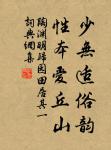 少無適俗韻
性本愛丘山
陶淵明歸園田居其一
詞典網集